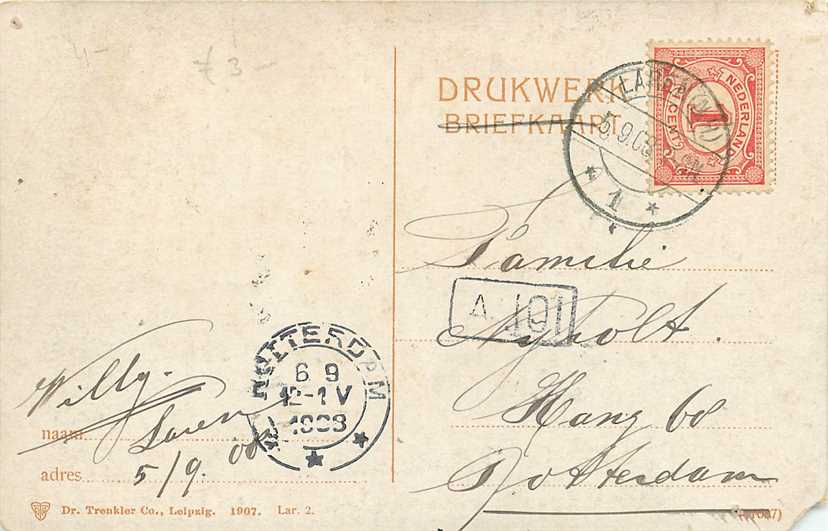 4-
f 3-
DRUKWERK
BRIEFKAART
NEDERLAND
1
CENT
LAREN (N.H)
5.9.08
1
Familie
A 101
Nyholt.
Hang 68
Rotterdam
ROTTERDAM
6 9
12-1 V
1908
Willy.
naam
Laren
adres
5/9. 08
Dr. Trenkler Co., Leipzig. 1907. Lar. 2.